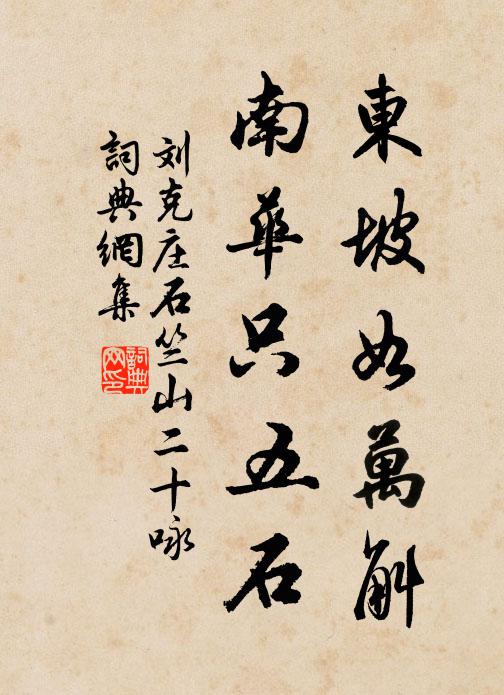 東坡如萬斛
南華只五石
刘克庄石竺山二十咏
詞典網集
詞典网印